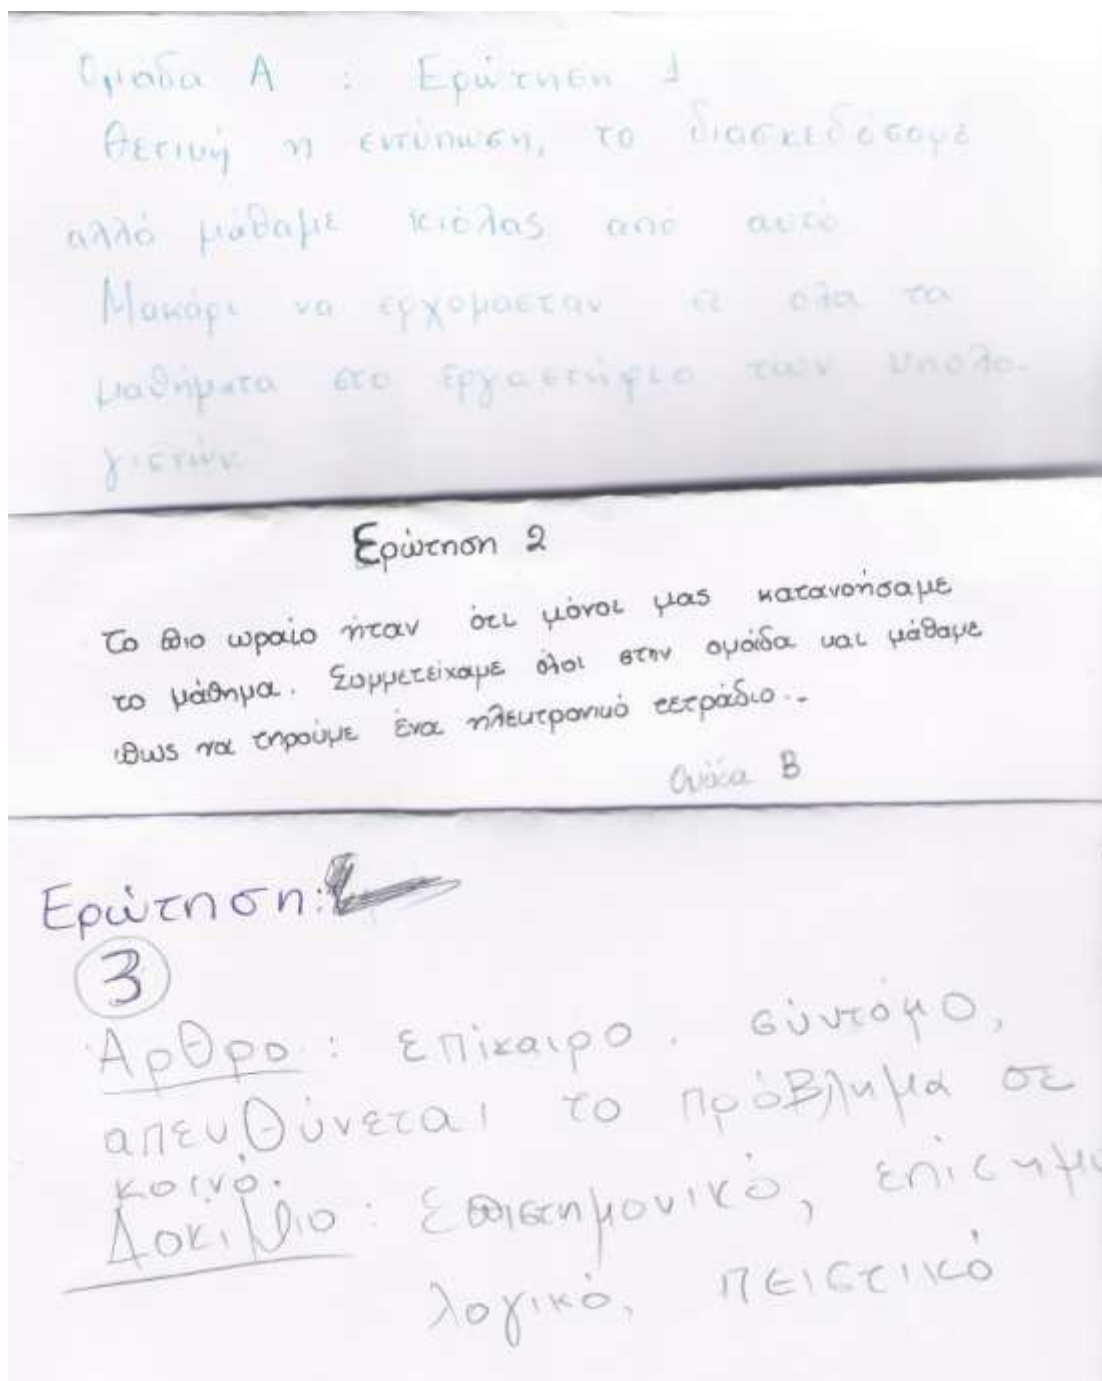 Ομάδα Α : Ερώτηση 1
Θετική η εντύπωση, το διασκεδάσαμε
αλλά μάθαμε κιόλας από αυτό
Μακάρι να ερχόμασταν σε όλα τα
μαθήματα στο εργαστήριο των υπολο-
γιστών.
Ερώτηση 2
Το πιο ωραίο ήταν ότι μόνοι μας κατανοήσαμε
το μάθημα. Συμμετείχαμε όλοι στην ομάδα και μάθαμε
πως να τηρούμε ένα ηλεκτρονικό τετράδιο..
Ομάδα Β
Ερώτηση:
3
Άρθρο : επίκαιρο . σύντομο,
απευθύνεται το πρόβλημα σε
κοινό.
Δοκίμιο : Επιστημονικό,
λογικό, πειστικό